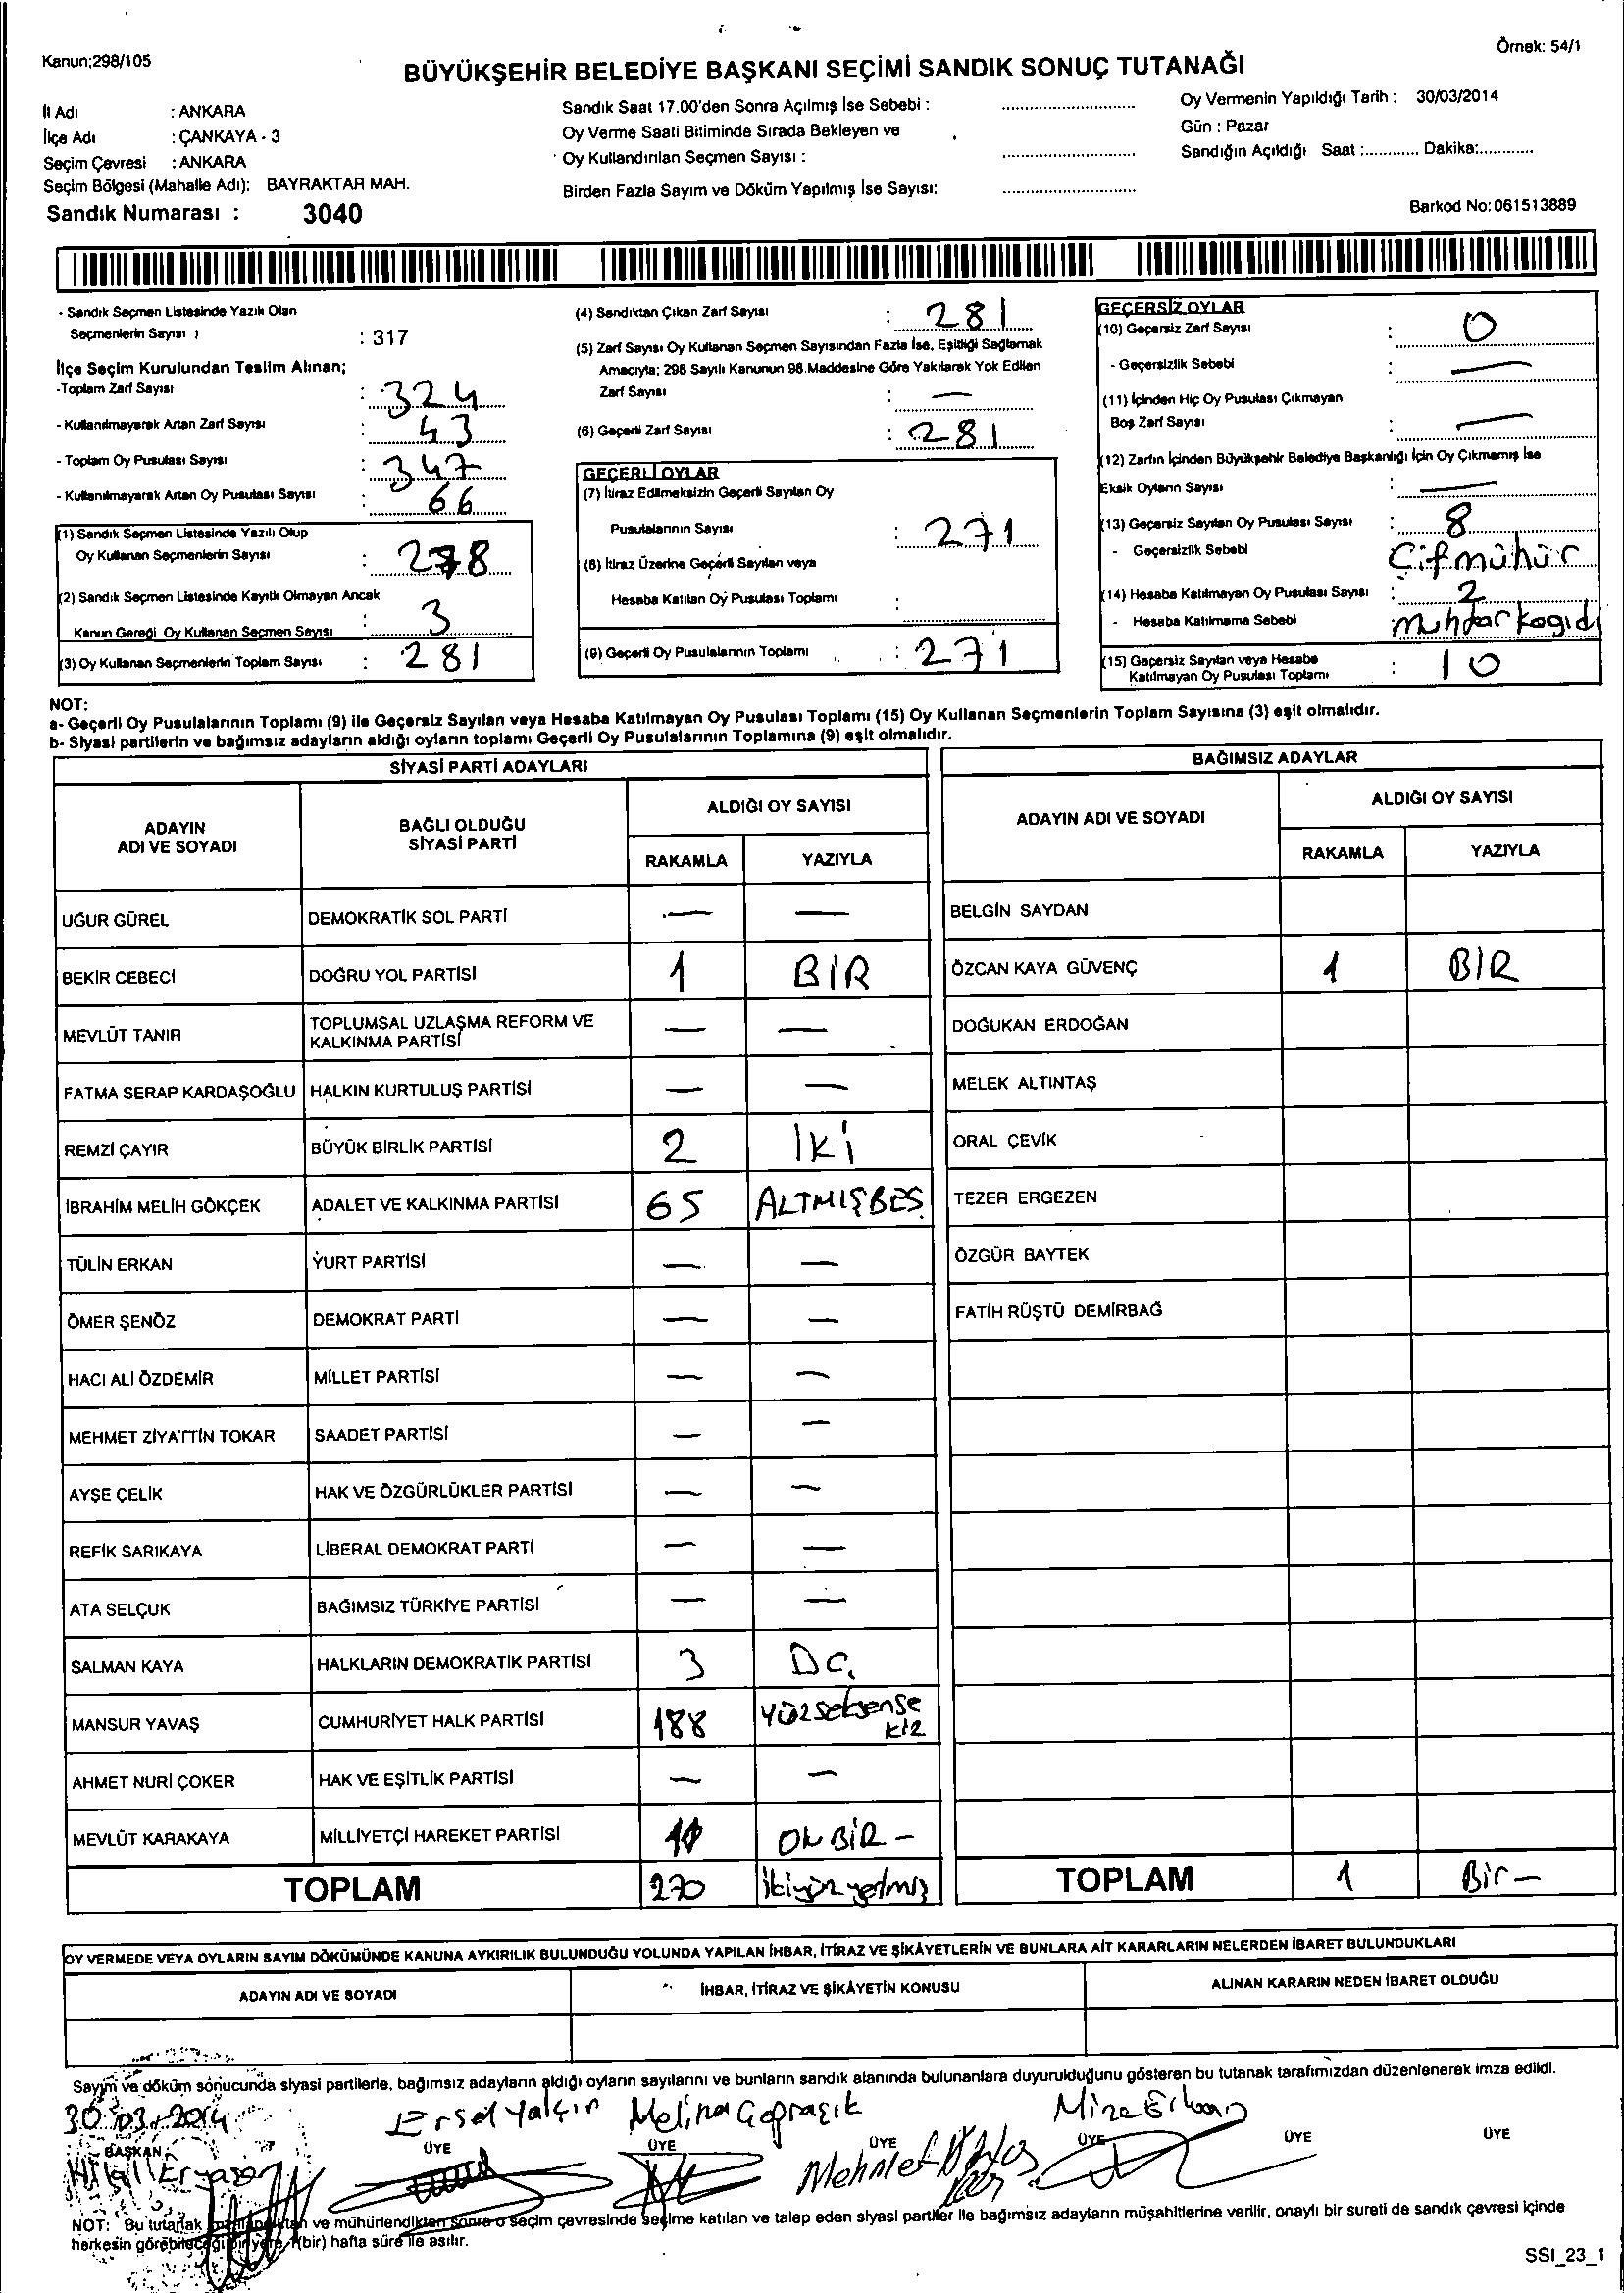 Kanun;298/105
Örnek: 54/1
BÜYÜKŞEHİR BELEDİYE BAŞKANI SEÇİMİ SANDIK SONUÇ TUTANAĞI
İl Adı : ANKARA
İlçe Adı : ÇANKAYA - 3
Seçim Çevresi : ANKARA
Seçim Bölgesi (Mahalle Adı): BAYRAKTAR MAH.
Sandık Numarası : 3040
Sandık Saat 17.00'den Sonra Açılmış İse Sebebi :
Oy Verme Saati Bitiminde Sırada Bekleyen ve
Oy Kullandırılan Seçmen Sayısı :
Birden Fazla Sayım ve Döküm Yapılmış İse Sayısı:
Oy Vermenin Yapıldığı Tarih : 30/03/2014
Gün : Pazar
Sandığın Açıldığı Saat :............ Dakika:............
Barkod No:061513889
- Sandık Seçmen Listesinde Yazılı Olan
Seçmenlerin Sayısı : 317
İlçe Seçim Kurulundan Teslim Alınan;
-Toplam Zarf Sayısı : 324
- Kullanılmayarak Artan Zarf Sayısı : 43
- Toplam Oy Pusulası Sayısı : 347
- Kullanılmayarak Artan Oy Pusulası Sayısı : 66
(1) Sandık Seçmen Listesinde Yazılı Olup
Oy Kullanan Seçmenlerin Sayısı : 278
(2) Sandık Seçmen Listesinde Kayıtlı Olmayan Ancak
Kanun Gereği Oy Kullanan Seçmen Sayısı : 3
(3) Oy Kullanan Seçmenlerin Toplam Sayısı : 281
(4) Sandıktan Çıkan Zarf Sayısı : 281
(5) Zarf Sayısı Oy Kullanan Seçmen Sayısından Fazla İse, Eşitliği Sağlamak
Amacıyla; 298 Sayılı Kanunun 98.Maddesine Göre Yakılarak Yok Edilen
Zarf Sayısı : —
(6) Geçerli Zarf Sayısı : 281
GEÇERLİ OYLAR
(7) İtiraz Edilmeksizin Geçerli Sayılan Oy
Pusulalarının Sayısı : 271
(8) İtiraz Üzerine Geçerli Sayılan veya
Hesaba Katılan Oy Pusulası Toplamı :
(9) Geçerli Oy Pusulalarının Toplamı : 271
GEÇERSİZ OYLAR
(10) Geçersiz Zarf Sayısı : 0
- Geçersizlik Sebebi : —
(11) İçinden Hiç Oy Pusulası Çıkmayan
Boş Zarf Sayısı : —
(12) Zarfın İçinden Büyükşehir Belediye Başkanlığı İçin Oy Çıkmamış İse
Eksik Oyların Sayısı : —
(13) Geçersiz Sayılan Oy Pusulası Sayısı : 8
- Geçersizlik Sebebi Çifmühür
(14) Hesaba Katılmayan Oy Pusulası Sayısı : 2
- Hesaba Katılmama Sebebi muhtar kagıdı
(15) Geçersiz Sayılan veya Hesaba
Katılmayan Oy Pusulası Toplamı : 10
NOT:
a- Geçerli Oy Pusulalarının Toplamı (9) ile Geçersiz Sayılan veya Hesaba Katılmayan Oy Pusulası Toplamı (15) Oy Kullanan Seçmenlerin Toplam Sayısına (3) eşit olmalıdır.
b- Siyasi partilerin ve bağımsız adayların aldığı oyların toplamı Geçerli Oy Pusulalarının Toplamına (9) eşit olmalıdır.
SİYASİ PARTİ ADAYLARI
ADAYIN
ADI VE SOYADI
BAĞLI OLDUĞU
SİYASİ PARTİ
ALDIĞI OY SAYISI
RAKAMLA YAZIYLA
UĞUR GÜREL DEMOKRATİK SOL PARTİ — —
BEKİR CEBECİ DOĞRU YOL PARTİSİ 1 BİR
MEVLÜT TANIR TOPLUMSAL UZLAŞMA REFORM VE
KALKINMA PARTİSİ — —
FATMA SERAP KARDAŞOĞLU HALKIN KURTULUŞ PARTİSİ — —
REMZİ ÇAYIR BÜYÜK BİRLİK PARTİSİ 2 İKİ
İBRAHİM MELİH GÖKÇEK ADALET VE KALKINMA PARTİSİ 65 ALTMIŞBEŞ
TÜLİN ERKAN YURT PARTİSİ — —
ÖMER ŞENÖZ DEMOKRAT PARTİ — —
HACI ALİ ÖZDEMİR MİLLET PARTİSİ — —
MEHMET ZİYATTİN TOKAR SAADET PARTİSİ — —
AYŞE ÇELİK HAK VE ÖZGÜRLÜKLER PARTİSİ — —
REFİK SARIKAYA LİBERAL DEMOKRAT PARTİ — —
ATA SELÇUK BAĞIMSIZ TÜRKİYE PARTİSİ — —
SALMAN KAYA HALKLARIN DEMOKRATİK PARTİSİ 3
MANSUR YAVAŞ CUMHURİYET HALK PARTİSİ 188 yüzseksense
kiz
AHMET NURİ ÇOKER HAK VE EŞİTLİK PARTİSİ — —
MEVLÜT KARAKAYA MİLLİYETÇİ HAREKET PARTİSİ 11 ON BİR -
TOPLAM 270 ikiyüz yetmiş
BAĞIMSIZ ADAYLAR
ADAYIN ADI VE SOYADI
ALDIĞI OY SAYISI
RAKAMLA YAZIYLA
BELGİN SAYDAN
ÖZCAN KAYA GÜVENÇ 1 BİR
DOĞUKAN ERDOĞAN
MELEK ALTINTAŞ
ORAL ÇEVİK
TEZER ERGEZEN
ÖZGÜR BAYTEK
FATİH RÜŞTÜ DEMİRBAĞ
TOPLAM 1 Bir -
OY VERMEDE VEYA OYLARIN SAYIM DÖKÜMÜNDE KANUNA AYKIRILIK BULUNDUĞU YOLUNDA YAPILAN İHBAR, İTİRAZ VE ŞİKÂYETLERİN VE BUNLARA AİT KARARLARIN NELERDEN İBARET BULUNDUKLARI
ADAYIN ADI VE SOYADI İHBAR, İTİRAZ VE ŞİKÂYETİN KONUSU ALINAN KARARIN NEDEN İBARET OLDUĞU
Sayım ve döküm sonucunda siyasi partilerle, bağımsız adayların aldığı oyların sayılarını ve bunların sandık alanında bulunanlara duyurulduğunu gösteren bu tutanak tarafımızdan düzenlenerek imza edildi.
30.03.2014 Ersel Yalçın Melina
BAŞKAN ÜYE ÜYE ÜYE ÜYE ÜYE ÜYE
Mehmet
NOT: Bu tutanak ve mühürlendikten sonra o seçim çevresinde seçime katılan ve talep eden siyasi partiler ile bağımsız adayların müşahitlerine verilir, onaylı bir sureti de sandık çevresi içinde
herkesin görebileceği bir yere 1(bir) hafta süre ile asılır.
SSI_23_1